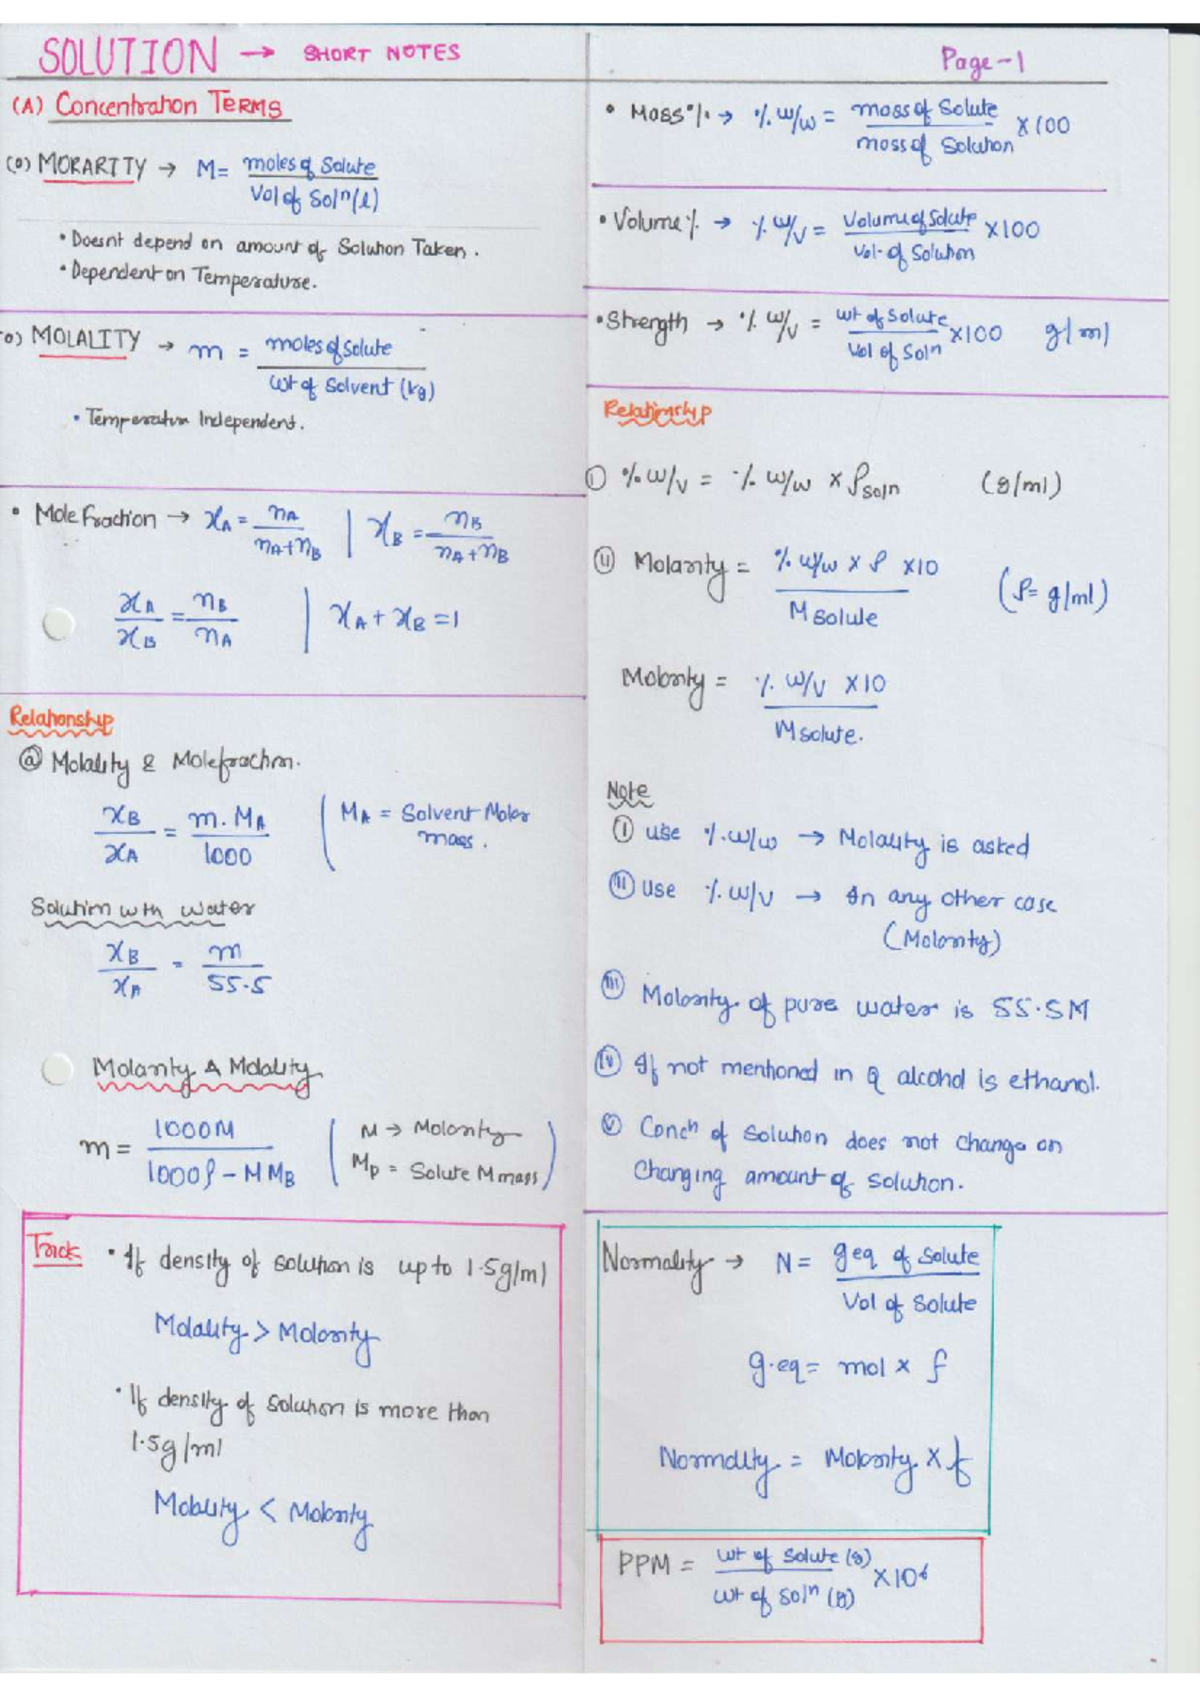 SOLUTION → SHORT NOTES
Page-1
(A) Concentration TERMS
(o) MORARITY → M = moles of Solute / Vol of Solⁿ(l)
• Doesnt depend on amount of Solution Taken.
• Dependent on Temperature.
(o) MOLALITY → m = moles of Solute / wt of Solvent (kg)
• Temperature Independent.
• Mole Fraction → xA = nA / nA+nB | xB = nB / nA+nB
xA / xB = nB / nA | xA + xB = 1
Relationship
ⓐ Molality & Molefraction.
xB / xA = m. MA / 1000 ( MA = Solvent Molar mass.
Solution with water
xB / xA = m / 55.5
Molarity & Molality
m = 1000M / 1000ρ - MMB ( M → Molarity
MD = Solute Mmass )
Trick • If density of solution is up to 1.5g/ml
Molality > Molarity
• If density of solution is more than
1.5g/ml
Molality < Molarity
• Mass % → % w/w = mass of Solute / mass of Solution × 100
• Volume % → % w/v = Volume of Solute / Vol. of Solution × 100
• Strength → % w/v = wt of Solute / Vol of Solⁿ × 100 g/ml
Relationship
① % w/v = % w/w × ρsoln (g/ml)
ⓘⓘ Molarity = % w/w × ρ × 10 / M Solute (ρ= g/ml)
Molarity = % w/v × 10 / M solute.
Note
ⓘ use % w/w → Molality is asked
ⓘⓘ use % w/v → In any other case
(Molarity)
ⓘⓘⓘ Molarity of pure water is 55.5M
ⓘⓥ If not mentioned in Q alcohol is ethanol.
ⓥ Concⁿ of solution does not change on
changing amount of solution.
Normality → N = geq of solute / Vol of Solute
g.eq = mol × f
Normality = Molarity × f
PPM = wt of Solute (g) / wt of Solⁿ (g) × 10⁶